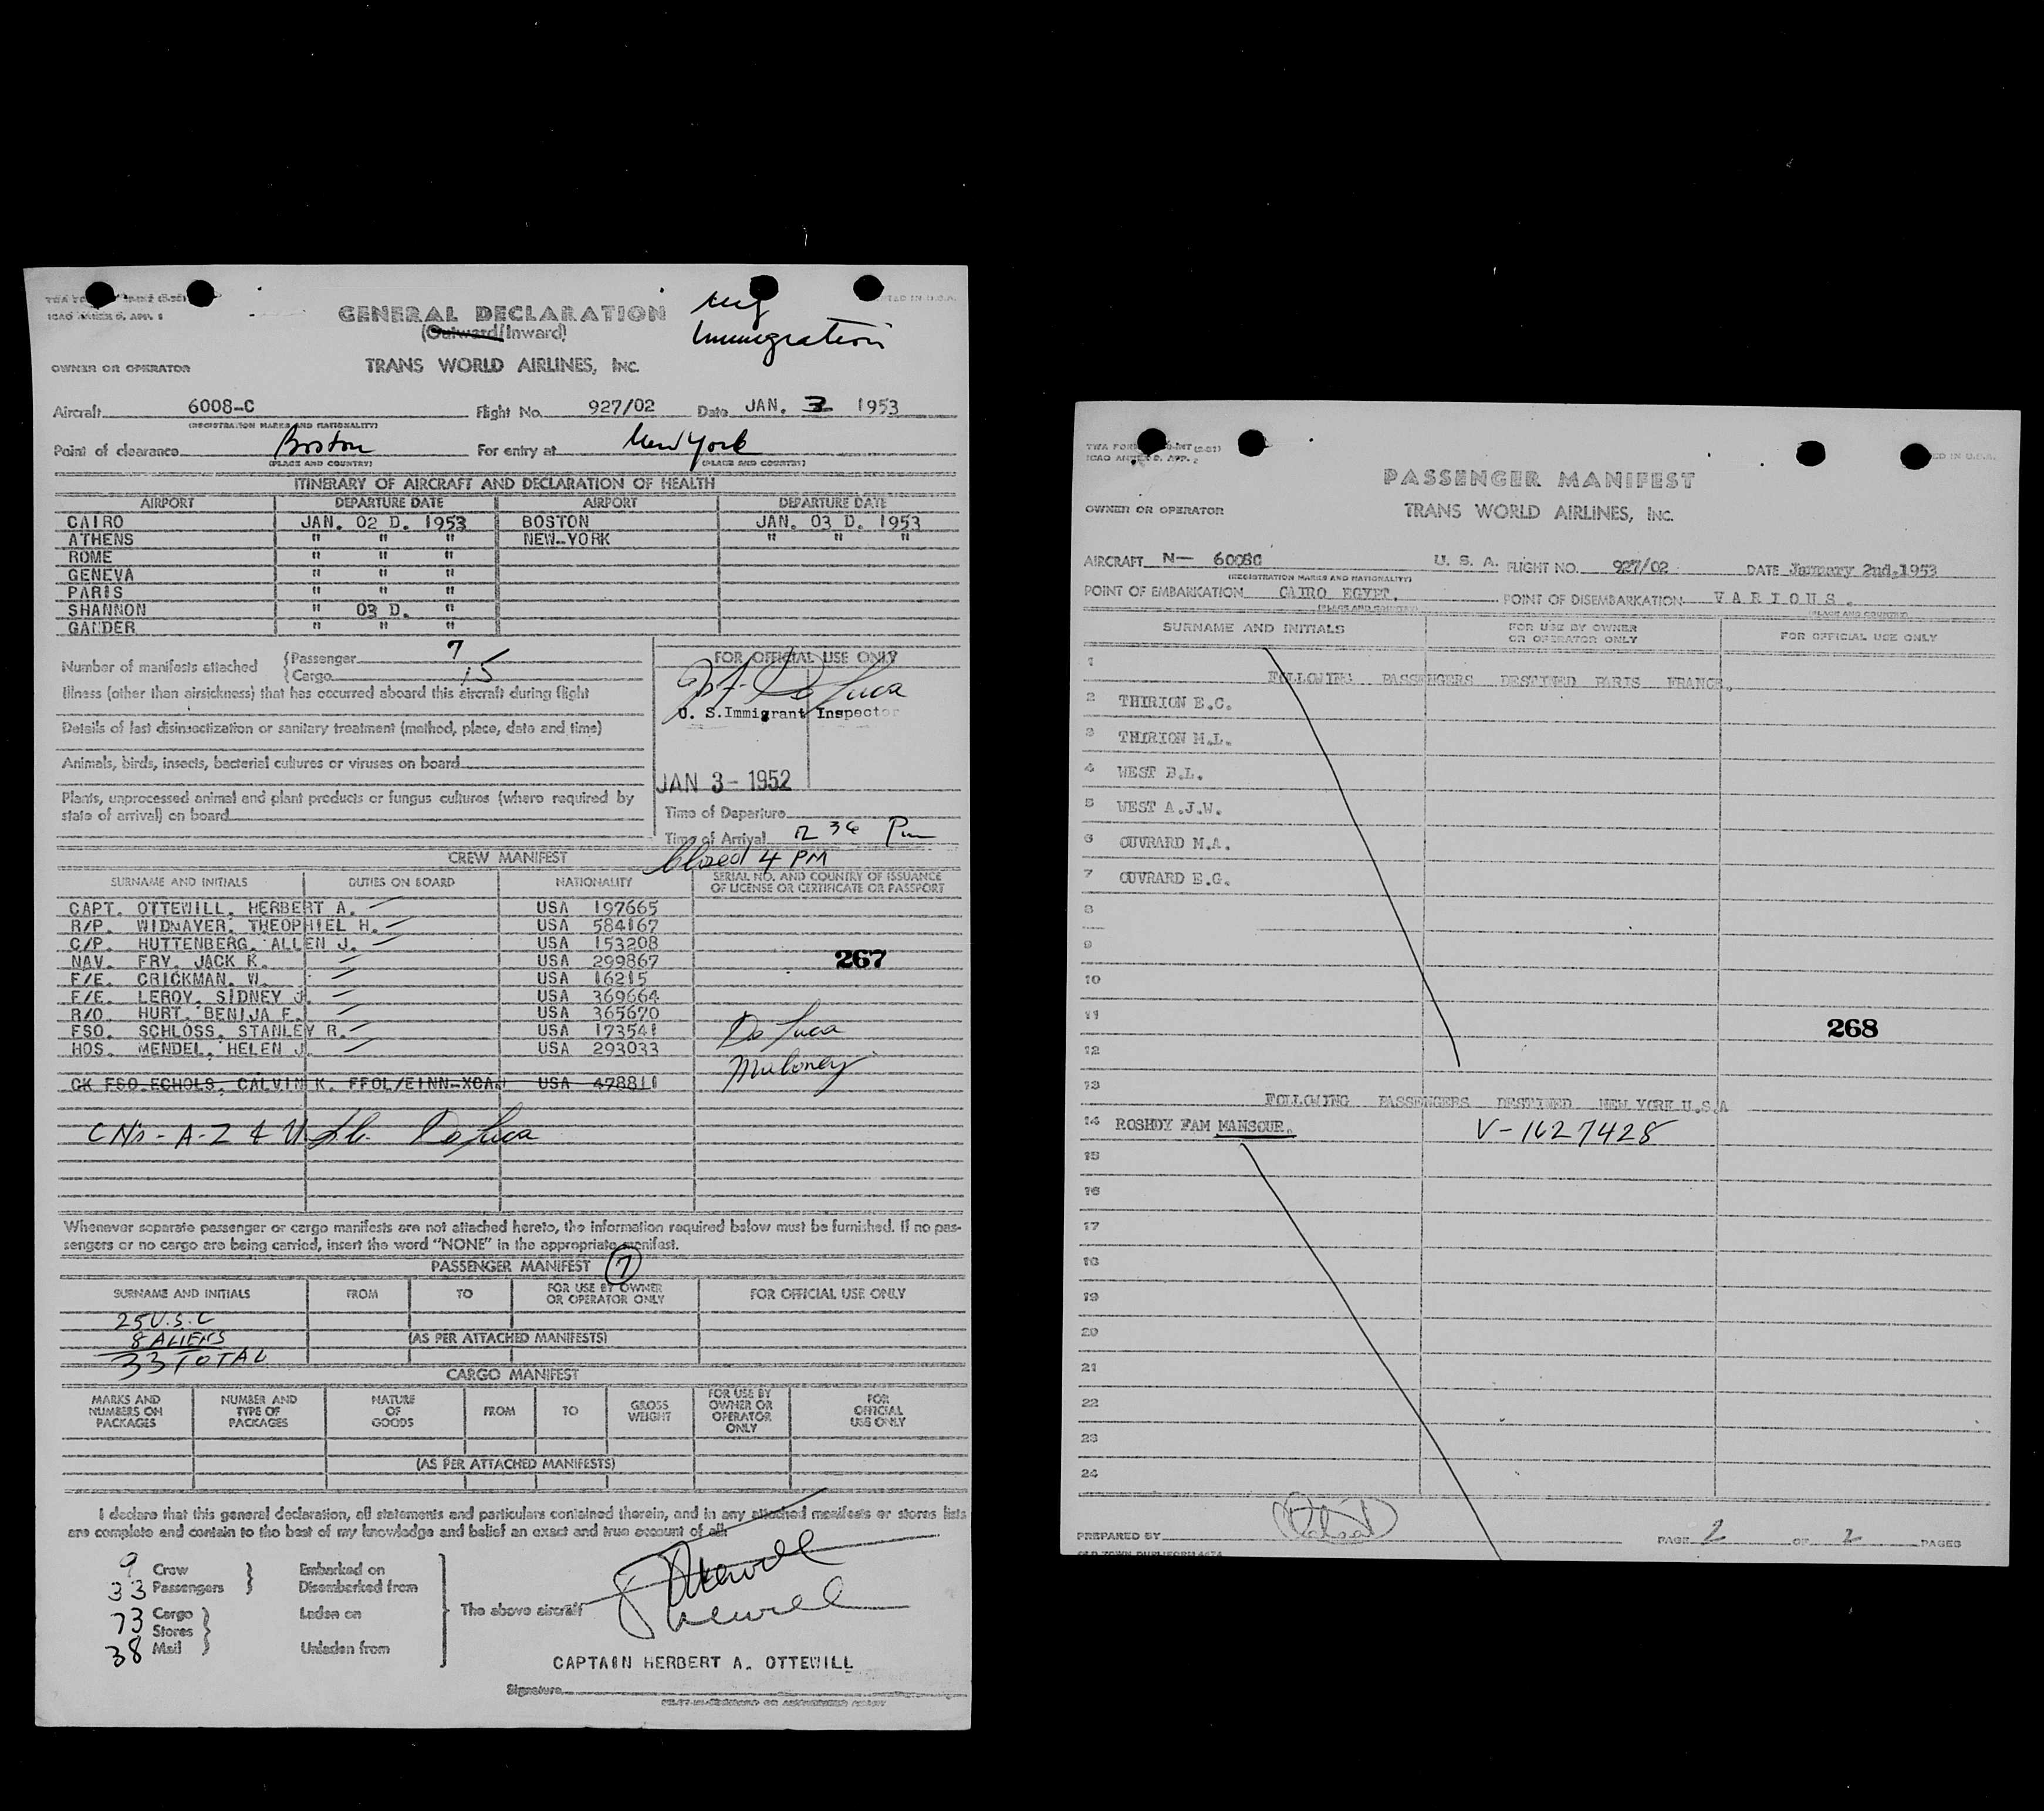 ICAO ANNEX 9, APP. 1
GENERAL DECLARATION
(Outward/Inward)
Immigration
OWNER OR OPERATOR
TRANS WORLD AIRLINES, INC.
Aircraft 6008-C Flight No. 927/02 Date JAN. 3 1953
(REGISTRATION MARKS AND NATIONALITY)
Point of clearance Boston For entry at New York
(PLACE AND COUNTRY) (PLACE AND COUNTRY)
ITINERARY OF AIRCRAFT AND DECLARATION OF HEALTH
AIRPORT DEPARTURE DATE AIRPORT DEPARTURE DATE
CAIRO JAN. 02 D. 1953 BOSTON JAN. 03 D. 1953
ATHENS " " " NEW-YORK " " "
ROME " " "
GENEVA " " "
PARIS " " "
SHANNON " 03 D. "
GANDER " " "
Number of manifests attached
(Passenger 7
(Cargo 15
Illness (other than airsickness) that has occurred aboard this aircraft during flight
Details of last disinsectization or sanitary treatment (method, place, date and time)
Animals, birds, insects, bacterial cultures or viruses on board
Plants, unprocessed animal and plant products or fungus cultures (where required by
state of arrival) on board
FOR OFFICIAL USE ONLY
De Luca
U. S. Immigrant Inspector
JAN 3 - 1952
Time of Departure
Time of Arrival 12 36 Pm
Closed 4 PM
CREW MANIFEST
SURNAME AND INITIALS DUTIES ON BOARD NATIONALITY SERIAL NO. AND COUNTRY OF ISSUANCE
OF LICENSE OR CERTIFICATE OR PASSPORT
CAPT. OTTEWILL, HERBERT A. USA 197665
R/P. WIDMAYER, THEOPHIEL H. USA 584167
C/P. HUTTENBERG, ALLEN J. USA 153208
NAV. FRY, JACK K. USA 299867
F/E. CRICKMAN, W. USA 16215
F/E. LEROY, SIDNEY J. USA 369664
R/O. HURT, BENIJA F. USA 365670
FSO. SCHLOSS, STANLEY R. USA 173541
HOS. MENDEL, HELEN J. USA 293033
267
De Luca
Muloney
CK FSO.ECHOLS, CALVIN K. FFOL/EINN-XCAN USA 478811
CN's - A-2 & De Luca
Whenever separate passenger or cargo manifests are not attached hereto, the information required below must be furnished. If no pas-
sengers or no cargo are being carried, insert the word "NONE" in the appropriate manifest.
PASSENGER MANIFEST 7
SURNAME AND INITIALS FROM TO FOR USE BY OWNER
OR OPERATOR ONLY FOR OFFICIAL USE ONLY
25 U.S.C
8 ALIENS (AS PER ATTACHED MANIFESTS)
33 TOTAL
CARGO MANIFEST
MARKS AND
NUMBERS ON
PACKAGES
NUMBER AND
TYPE OF
PACKAGES
NATURE
OF
GOODS
FROM
TO
GROSS
WEIGHT
FOR USE BY
OWNER OR
OPERATOR
ONLY
FOR
OFFICIAL
USE ONLY
(AS PER ATTACHED MANIFESTS)
I declare that this general declaration, all statements and particulars contained therein, and in any attached manifests or stores lists
are complete and contain to the best of my knowledge and belief an exact and true account of all:
9 Crew Embarked on
33 Passengers Disembarked from
73 Cargo Laden on
Stores The above aircraft
38 Mail Unladen from
Ottewill
CAPTAIN HERBERT A. OTTEWILL
Signature
ICAO ANNEX 9, APP. 2
PASSENGER MANIFEST
OWNER OR OPERATOR TRANS WORLD AIRLINES, INC.
AIRCRAFT N- 6008C U. S. A. FLIGHT NO. 927/02 DATE January 2nd,1953
(REGISTRATION MARKS AND NATIONALITY)
POINT OF EMBARKATION CAIRO EGYPT. POINT OF DISEMBARKATION VARIOUS.
(PLACE AND COUNTRY) (PLACE AND COUNTRY)
SURNAME AND INITIALS FOR USE BY OWNER
OR OPERATOR ONLY FOR OFFICIAL USE ONLY
1 FOLLOWING PASSENGERS DESTINED PARIS FRANCE.
2 THIRION E.C.
3 THIRION M.L.
4 WEST B.L.
5 WEST A.J.W.
6 OUVRARD M.A.
7 OUVRARD E.G.
8
9
10
11
268
12
13 FOLLOWING PASSENGERS DESTINED NEW YORK U.S.A
14 ROSHDY FAM MANSOUR. V-1627428
15
16
17
18
19
20
21
22
23
24
PREPARED BY PAGE 2 OF 2 PAGES